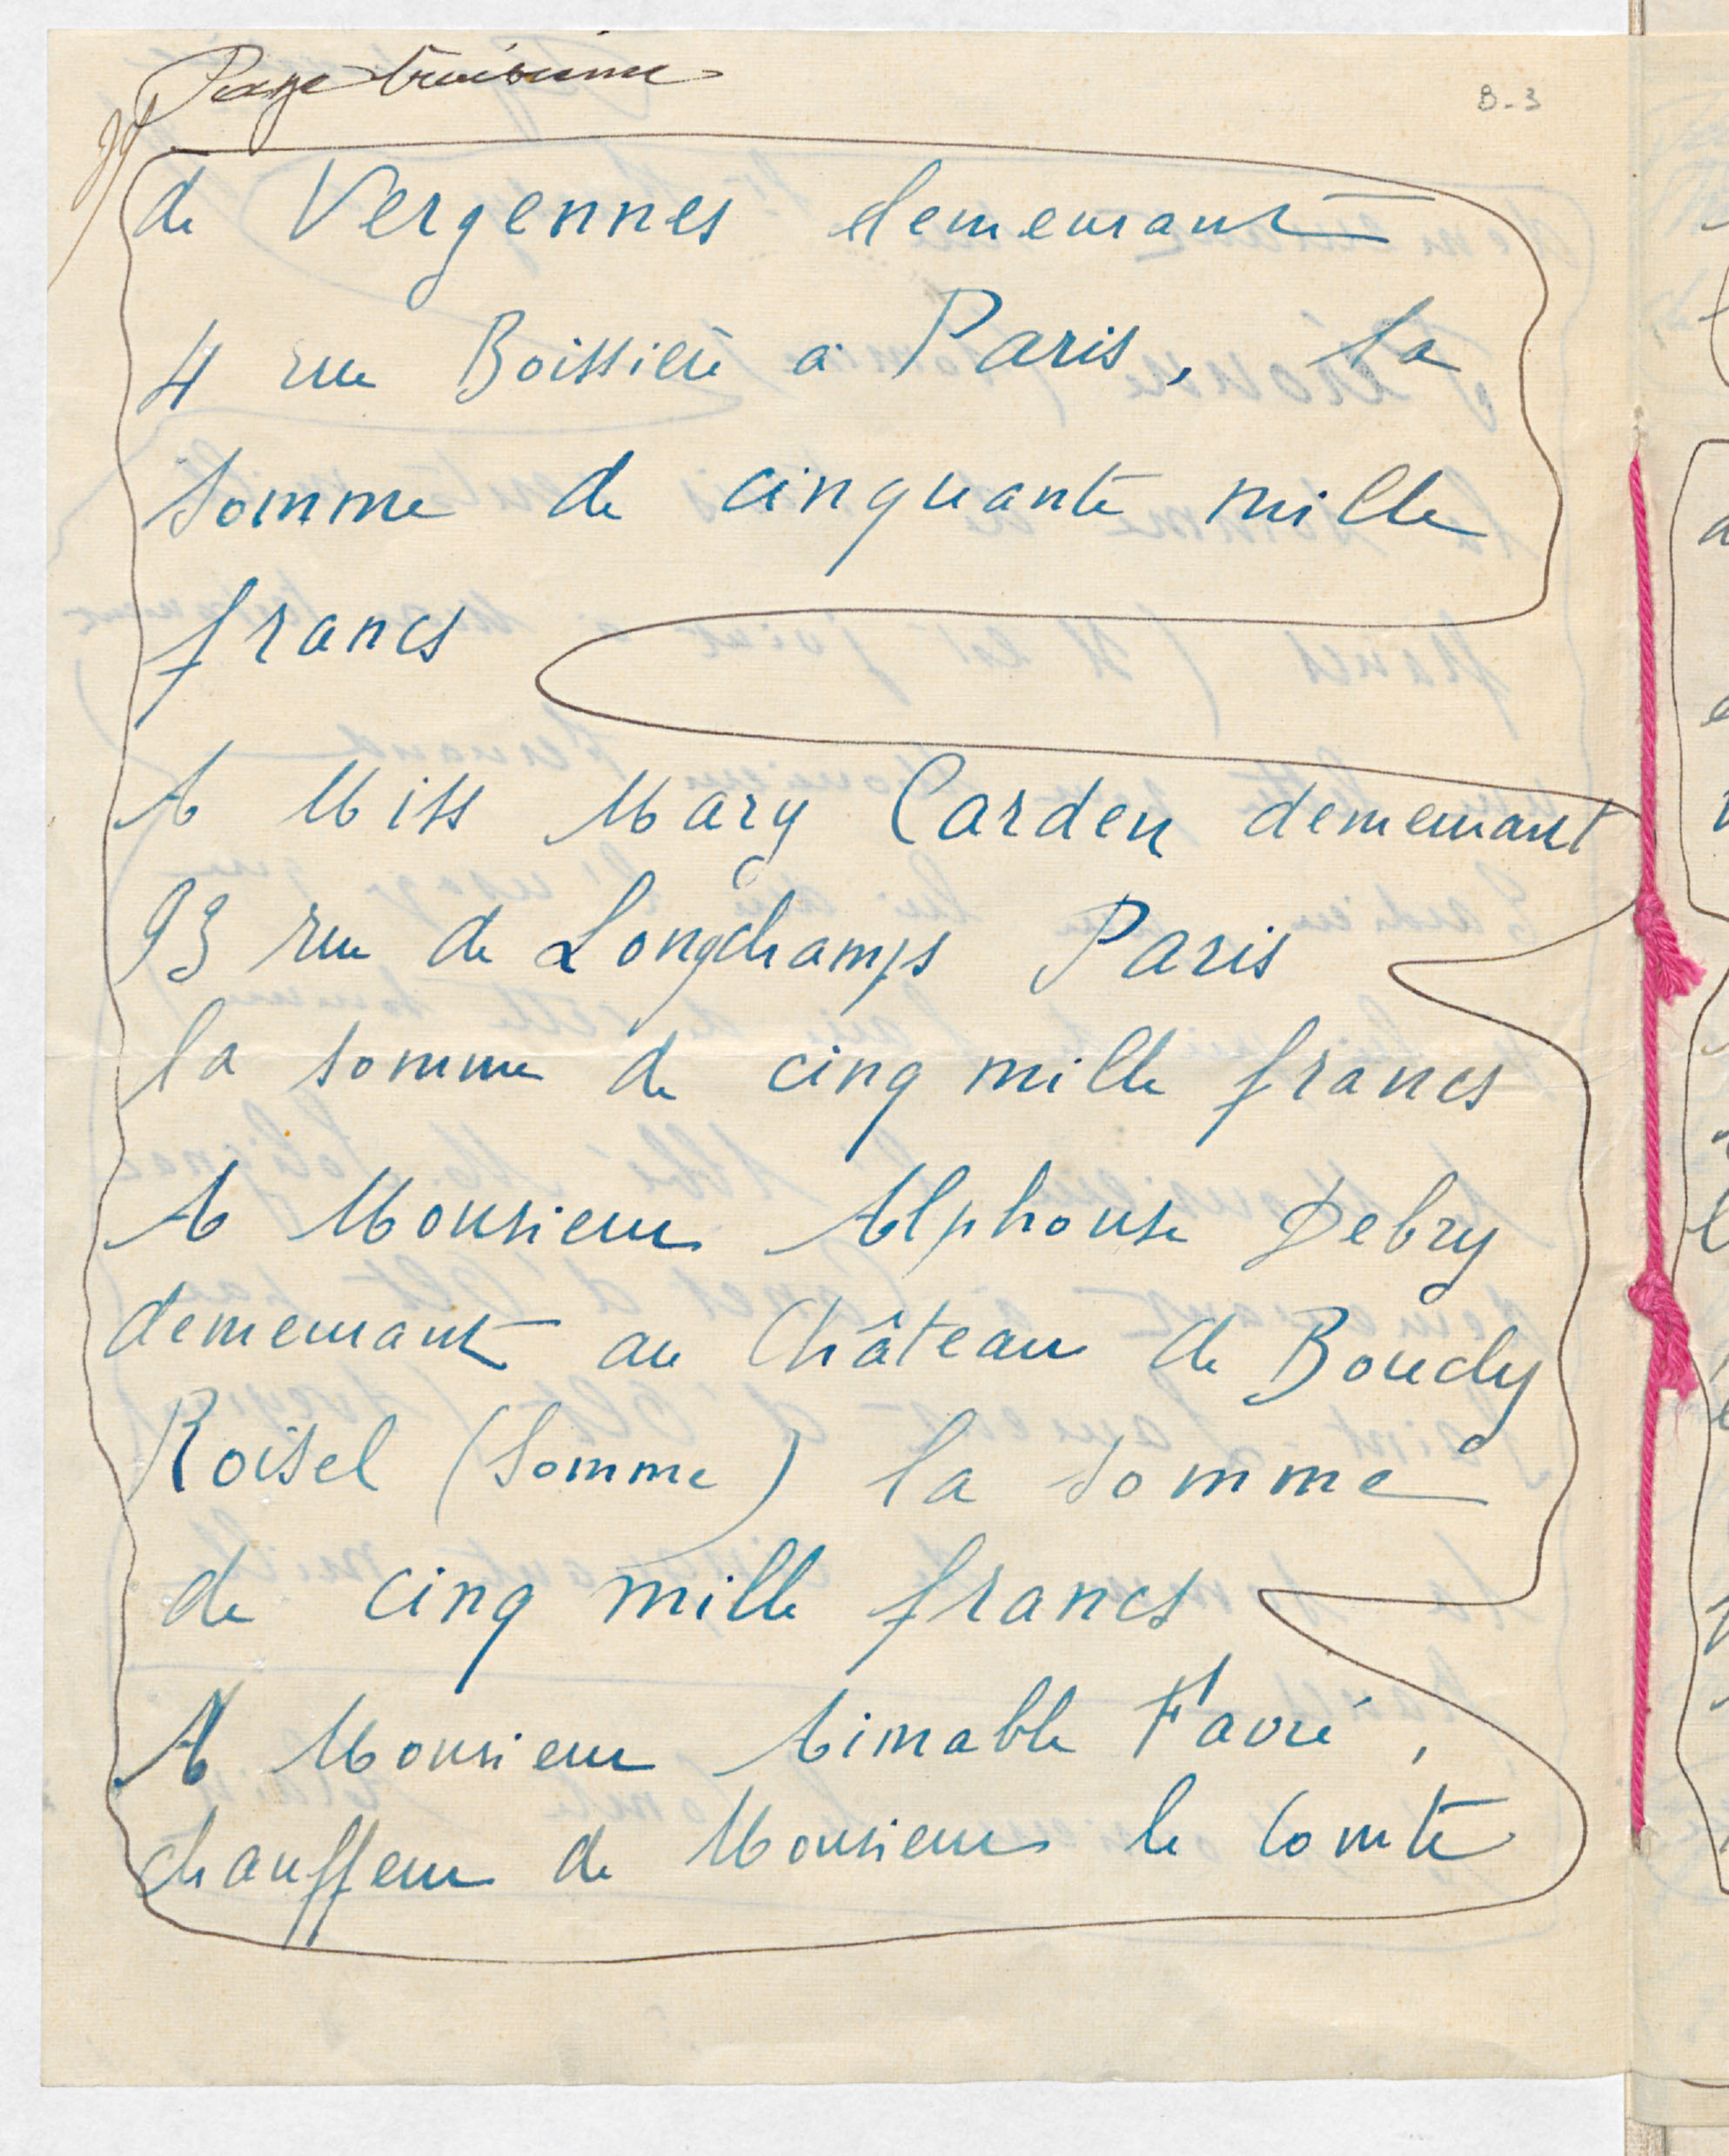 Page troisième
B-3
de Vergennes demeurant
4 rue Boissière à Paris, la
somme de cinquante mille
francs
A Miss Mary Carden demeurant
93 rue de Longchamps Paris
la somme de cinq mille francs
A Monsieur Alphonse Debry
demeurant au Château de Boucly
Roisel (Somme) la somme
de cinq mille francs
A Monsieur Aimable Favre,
chauffeur de Monsieur le Comte